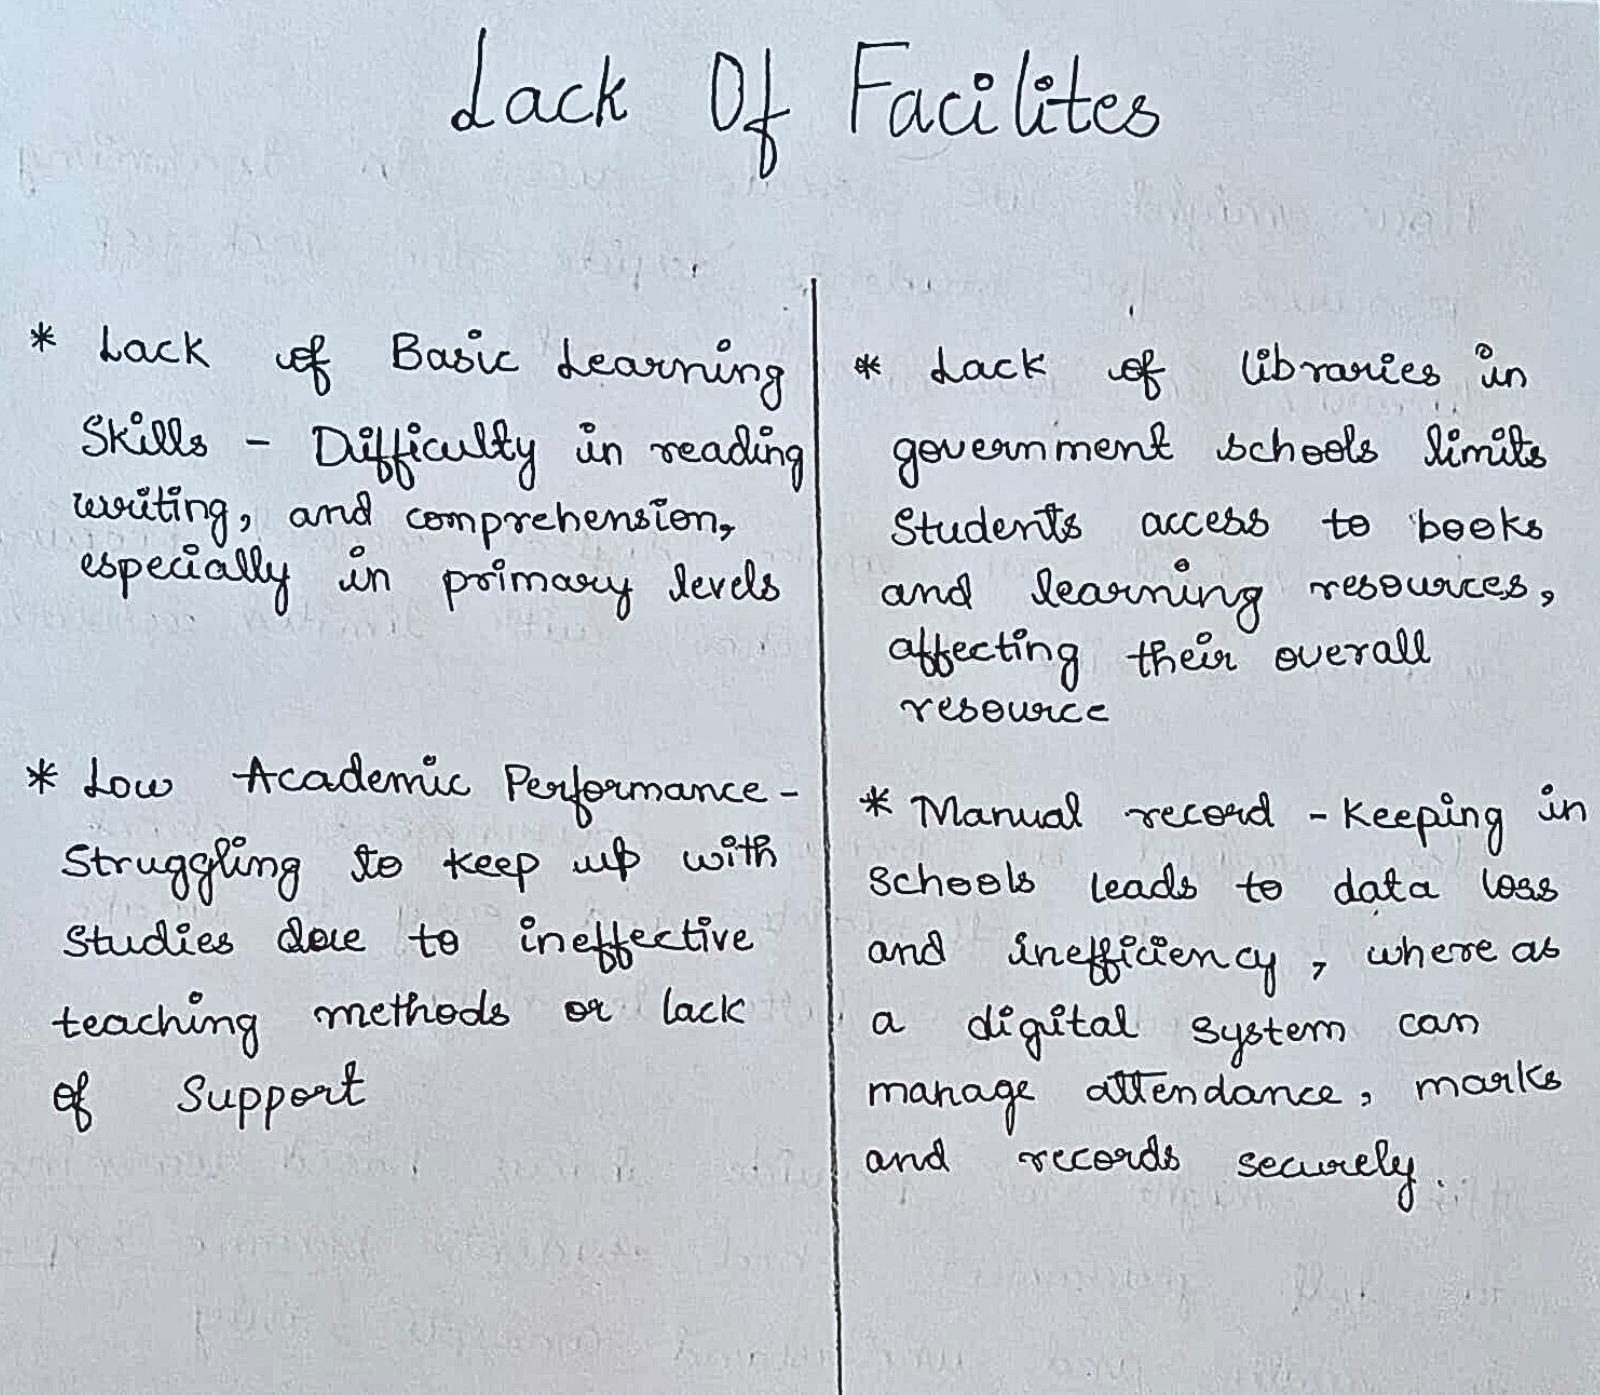 Lack Of Facilites
* Lack of Basic Learning
Skills - Difficulty in reading
writing, and comprehension,
especially in primary levels
* Low Academic Performance -
Struggling to keep up with
studies due to ineffective
teaching methods or lack
of Support
* Lack of libraries in
government schools limits
Students access to books
and learning resources,
affecting their overall
resource
* Manual record - keeping in
Schools leads to data loss
and inefficiency, where as
a digital system can
manage attendance, marks
and records securely.